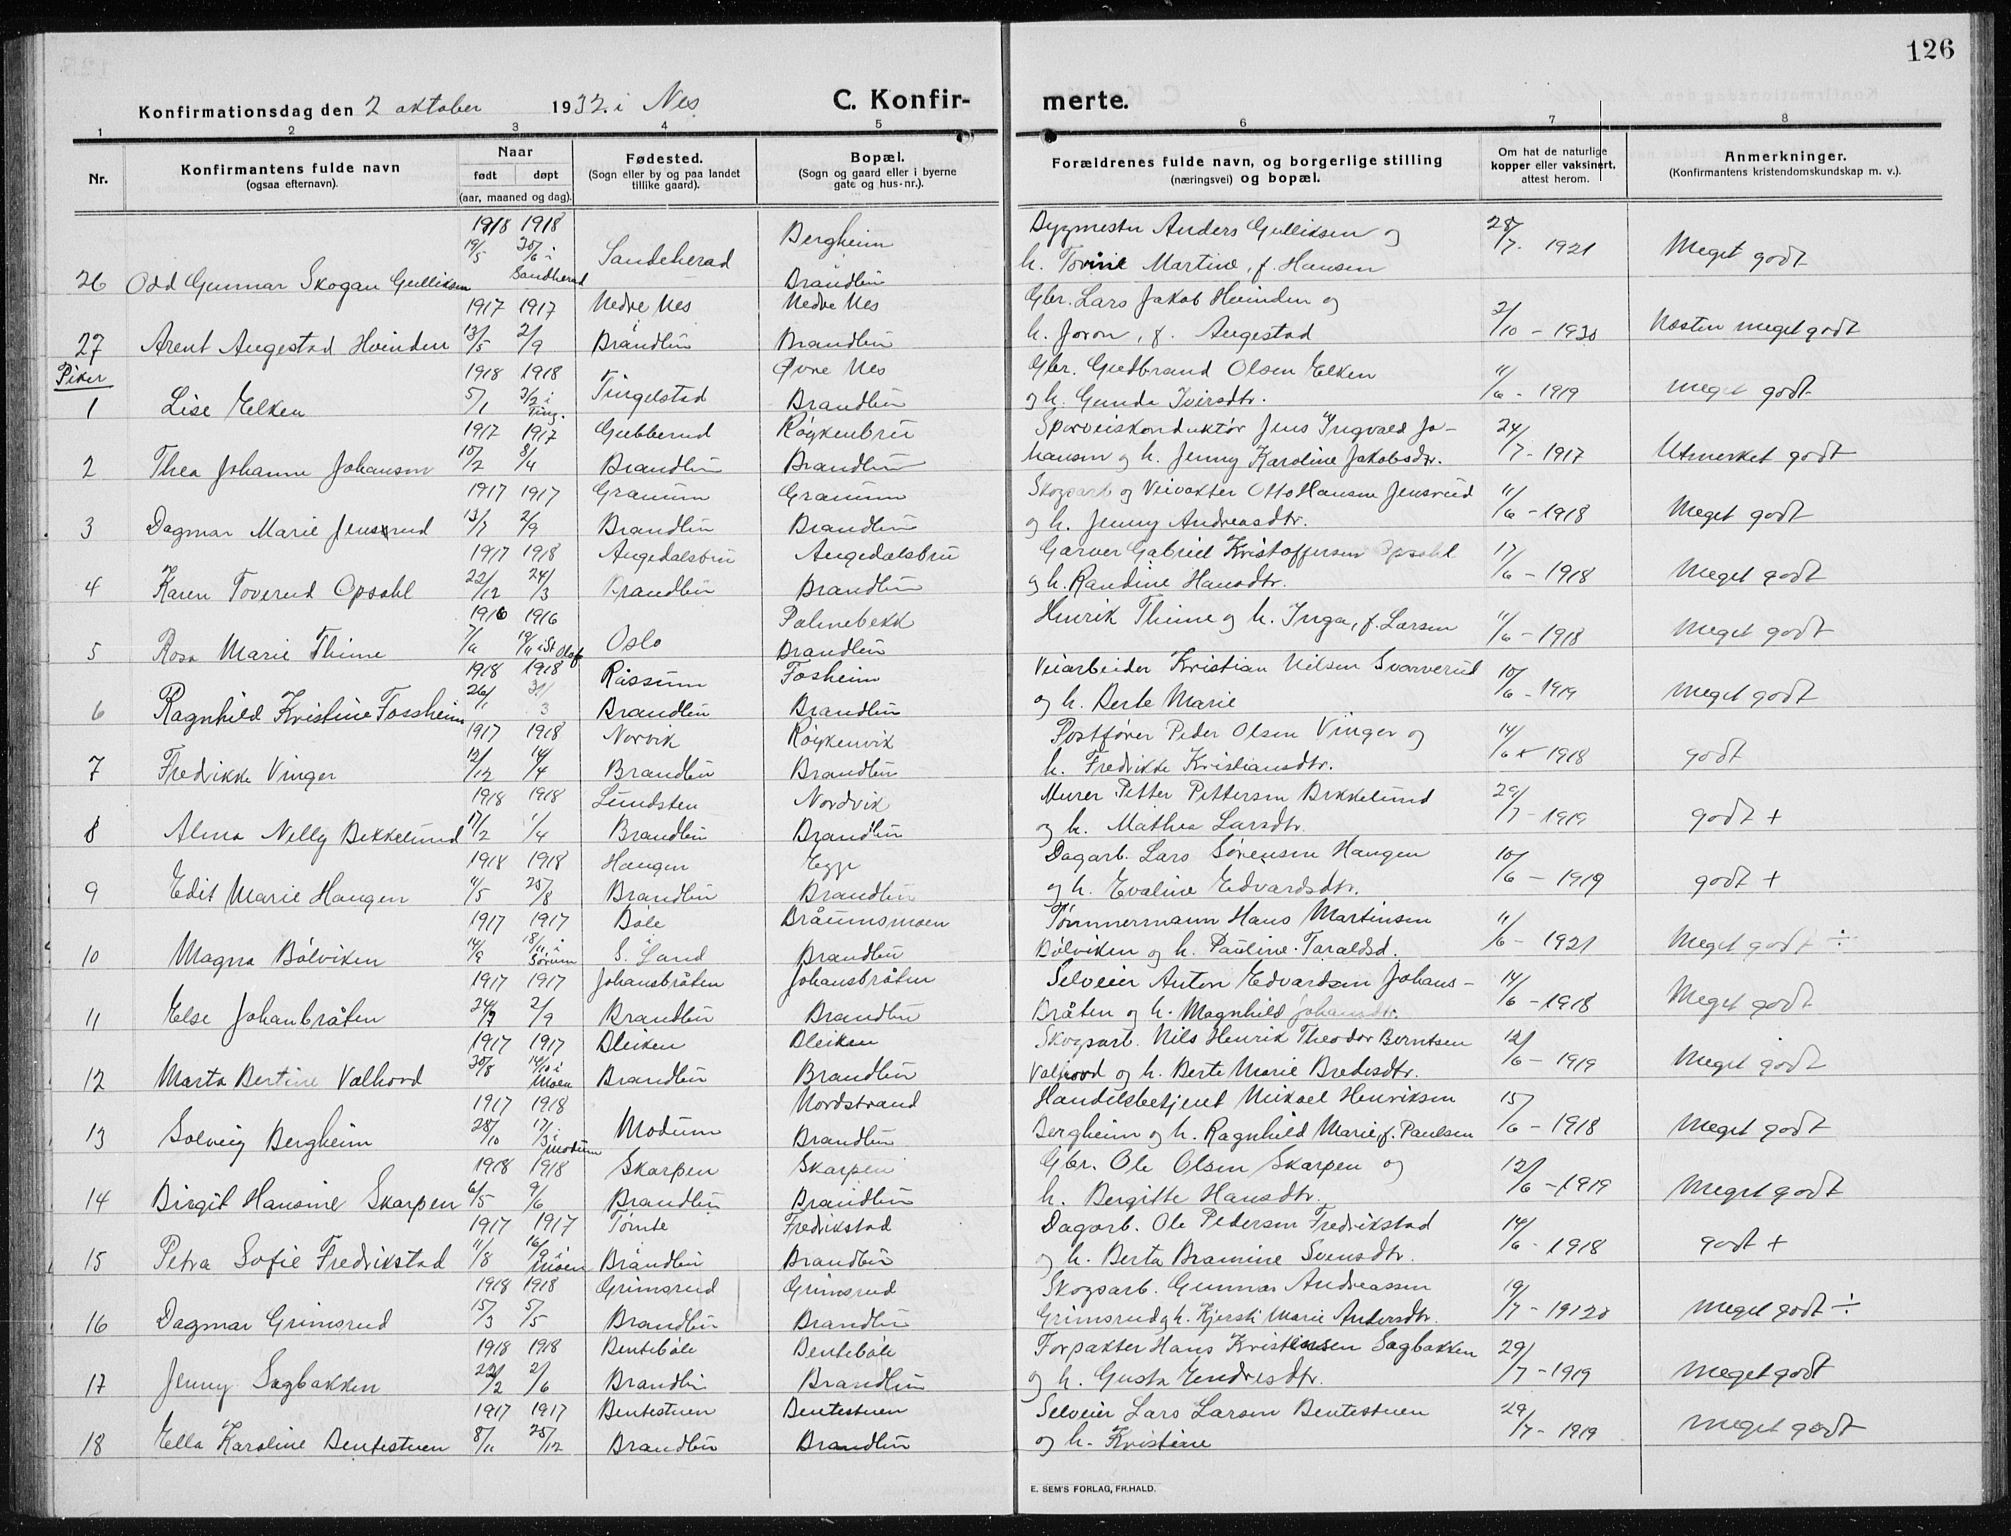 126
Konfirmationsdag den 2 oktober 1932. i Nes
C. Konfir- merte.
1 2 3 4 5 6 7 8
Nr.
Konfirmantens fulde navn
(ogsaa efternavn).
Naar
født døpt
(aar, maaned og dag).
Fødested.
(Sogn eller by og paa landet
tillike gaard).
Bopæl.
(Sogn og gaard eller i byerne
gate og hus-nr.).
Forældrenes fulde navn, og borgerlige stilling
(næringsvei) og bopæl.
Om hat de naturlige
kopper eller vaksinert,
attest herom.
Anmerkninger.
(Konfirmantens kristendomskundskap m. v.).
1918 1918 Bergheim Bygmester Anders Gulliksen og 28/7 - 1921
26 Odd Gunnar Skogan Gulliksen 19/5 30/6 i Sandeherad Sandeherad Brandbu h. Torine Martine, f. Hansen Meget godt
1917 1917 Nedre Nes Nedre Nes Gbr. Lars Jakob Hvinden og
27 Arent Augestad Hvinden 13/5 2/9 Brandbu Brandbu h. Joron, f. Augestad 2/10 - 1930 Næsten meget godt
Piker 1918 1918 Tingelstad Øvre Nes Gbr. Gudbrand Olsen Elken
1 Lise Elken 5/1 3/2 i Ting. Brandbu og h. Gunda Iversdtr. 11/6 - 1919 meget godt
1917 1917 Gubberud Røykenbru Sporveiskonduktør Jens Ingvald Jo-
2 Thea Johanne Johansen 10/2 8/4 Brandbu Brandbu hansen og h. Jenny Karoline Jakobsdtr. 24/7 - 1917 Utmerket godt
1917 1917 Granum Granum Skogsarb og Veivokter Otto Hansen Jensrud
3 Dagmar Marie Jensrud 13/7 2/9 Brandbu Brandbu og h. Jenny Andreasdtr. 11/6 - 1918 Meget godt
1917 1918 Augedalsbru Augedalsbru Garver Gabriel Kristoffersen Opsahl
4 Karen Toverud Opsahl 22/12 24/3 Brandbu Brandbu og h. Randine Hansdtr. 17/6 - 1918 Meget godt
1916 1916 Palmebekk Henrik Thime og h. Inga, f. Larsen
5 Rosa Marie Thime i St Olaf Oslo Brandbu 11/6 - 1918 Meget godt
1918 1918 Rassum Fosheim Veiarbeider Kristian Nilsen Svarverud
6 Ragnhild Kristine Fossheim 26/1 31/3 Brandbu Brandbu og h. Berte Marie 10/6 - 1919 Meget godt
1917 1918 Norvik Røykenvik Postfører Peder Olsen Vinger og
7 Fredrikke Vinger 12/12 14/4 Brandbu Brandbu h. Fredrikke Kristiansdtr. 14/6 - 1918 godt
1918 1918 Lundsten Nordvik Murer Petter Pettersen Bekkelund
8 Alma Nelly Bekkelund 17/2 1/4 Brandbu Brandbu og h. Mathea Larsdtr. 29/7 - 1919 godt +
1918 1918 Haugen Egge Dagarb. Lars Sørensen Haugen
9 Edit Marie Haugen 11/5 25/8 Brandbu Brandbu og h. Evaline Edvardsdtr. 10/6 - 1919 godt +
1917 1917 Dale Bråumsmoen Tømmermann Hans Martinsen
10 Magna Bølviken 14/9 18/11 i Sørum S. Land Brandbu Bølviken og h. Pauline Taraldsd. 11/6 - 1921 Meget godt ÷
1917 1917 Johansbråten Johansbråten Selveier Anton Edvardsen Johans-
11 Else Johanbråten 24/7 2/9 Brandbu Brandbu Bråten og h. Magnhild Johansdtr. 14/6 - 1918 Meget godt
1917 1917 Bleiken Bleiken Skogsarb. Nils Henrik Theodor Berntsen
12 Marta Bertine Valhovd 30/8 14/10 i Moen Brandbu Brandbu Valhovd og h. Berte Marie Bredesdtr. 12/6 - 1919 Meget godt
1917 1918 Modum Nordstrand Handelsbetjent Mikael Henriksen
13 Solveig Bergheim 28/10 17/3 i Modum Brandbu Bergheim og h. Ragnhild Marie, f. Paulsen 15/6 - 1918 Meget godt
1918 1918 Skarpen Skarpen Gbr. Ole Olsen Skarpen og
14 Birgit Hansine Skarpen 6/5 9/6 Brandbu Brandbu h. Bergitte Hansdtr. 12/6 - 1919 Meget godt
1917 1917 Tømte Fredrikstad Dagarb. Ole Pedersen Fredrikstad
15 Petra Sofie Fredrikstad 11/8 16/9 i Moen Brandbu Brandbu og h. Berta Bramine Svensdtr. 14/6 - 1918 godt +
1918 1918 Grimsrud Grimsrud Skogsarb. Gunnar Andreassen
16 Dagmar Grimsrud 15/3 5/5 Brandbu Brandbu Grimsrud og h. Kjersti Marie Andersdtr. 19/7 - 1920 Meget godt ÷
1918 1918 Bentebøle Bentebøle Forpakter Hans Kristensen Sagbakken
17 Jenny Sagbakken 22/2 2/6 Brandbu Brandbu og h. Gusta Endresdtr. 29/7 - 1919 Meget godt
1917 1917 Bentestuen Bentestuen Selveier Lars Larsen Bentestuen
18 Ella Karoline Bentestuen 8/11 25/12 Brandbu Brandbu og h. Kristine 29/7 - 1919 Meget godt
E. SEM'S FORLAG, FR.HALD.